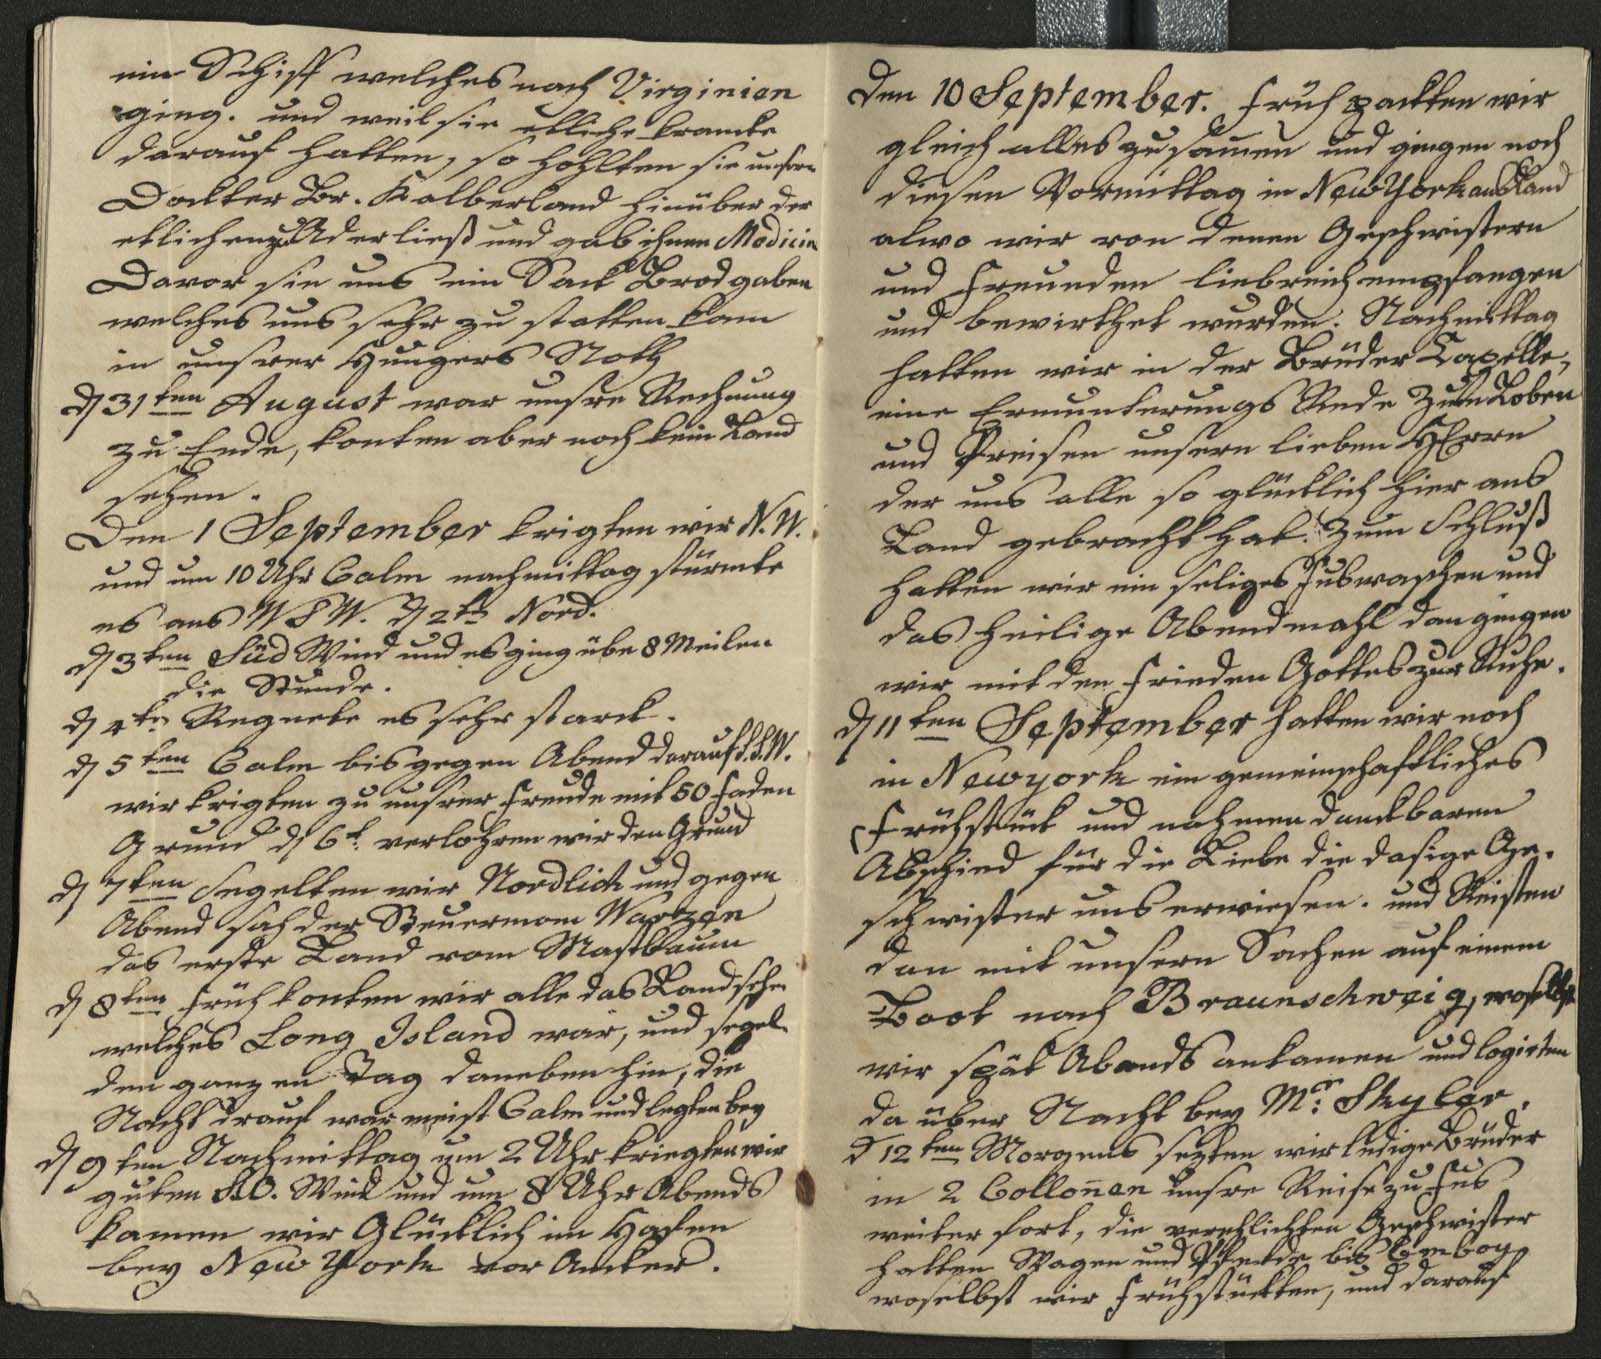 ein Schiff welches nach Virginien
ging. und weil sie etliche krancke
darauf hatten, so hohlten sie unsern
Dockter Br. Kalberland hinüber der
etlichen zu Ader ließ und gab ihnen Medicin
Davor sie uns ein Sack Brod gaben
welches uns sehr zu statten kam
in unsrer Hungers Noth
d 31ten August war unsre Rechnung
zu Ende, konten aber noch kein Land
sehen.
Den 1 September krigten wir N.W.
und um 10 Uhr Calm nachmittag stürmte
es aus WSW. d 2tn Nord.
d 3ten Süd Wind und es ging übe 8 Meilen
die Stunde.
d 4tn Regnete es sehr starck.
d 5ten Calm bis gegen Abend darauf S.S.W.
wir krigten zu unsrer Freude mit 50 Faden
Grund d 6t. verlohren wir den Grund
d 7ten segelten wir Nordlich und gegen
Abend sah der Steuermann
das erste Land vom Mastbaum
d 8ten Früh konten wir alle das Land sehn
welches Long Island war, und segel
den ganzen Tag daneben hin, die
Nacht drauf war meist Calm und legten bey
d 9ten Nachmittag um 2 Uhr kriegten wir
guten SO. Wind und um 8 Uhr Abends
kamen wir Glücklich im Hafen
bey New York vor Ancker.
Den 10 September. Früh packten wir
gleich alles zusamen und gingen noch
diesen Vormittag in New York ans Land
alwo wir von denen Geschwistern
und Freunden liebreich empfangen
und bewirthet wurden. Nachmittag
hatten wir in der Brüder Capelle,
eine Ermunterungs Rede zum Loben
und Preisen unsern lieben HErrn
der uns alle so glücklich hier ans
Land gebracht hat. Zum Schluß
hatten wir ein seliges Fuswaschen und
das heilige Abendmahl dan gingen
wir mit den Frieden Gottes zur Ruhe.
d 11ten September hatten wir noch
in Newyork ein gemeinschaftliches
Frühstück und nahmen danckbaren
Abschied für die Liebe die dasige Ge-
schwister uns erwiesen. und Reisten
dan mit unsern Sachen auf einem
Boot nach Braunschweig, woselbst
wir spät Abends ankamen und logirten
da über Nacht bey Mr: Skyler.
d 12ten Morgens sezten wir ledige Brüder
in 2 Collonnen unsre Reise zu Fus
weiter fort, die verehlichten Geschwister
hatten Wagen und Pferde bis Emboy
woselbst wir Frühstückten, und darauf